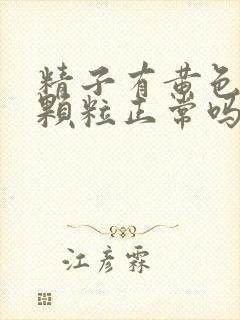 精子有黄色
颗粒正常吗
江彦霖